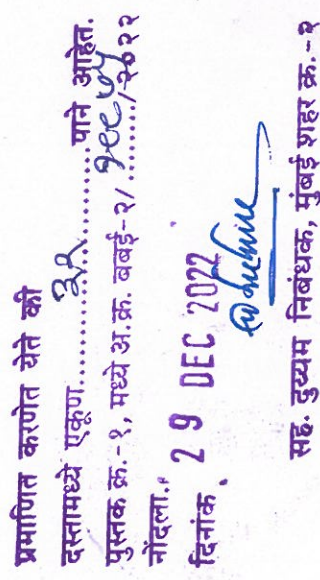 प्रमाणित करणेत येते की
दस्तामध्ये एकूण....३२....पाने आहेत.
पुस्तक क्र.-१, मध्ये अ.क्र. बबई-२/....../२०२२
नोंदला.
दिनांक. 29 DEC 2022
सह. दुय्यम निबंधक, मुंबई शहर क्र.-२